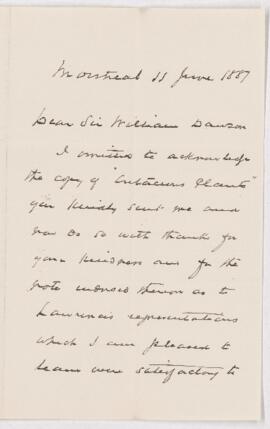 Montreal 11 June 1887
Dear Sir William Dawson
I omitted to acknowledge
the copy of "Cretaceous Plants"
you kindly sent me and
now do so with thanks for
your kindness and for the
note indorsed thereon as to
Lawrence's representations
which I am pleased to
learn were satisfactory to